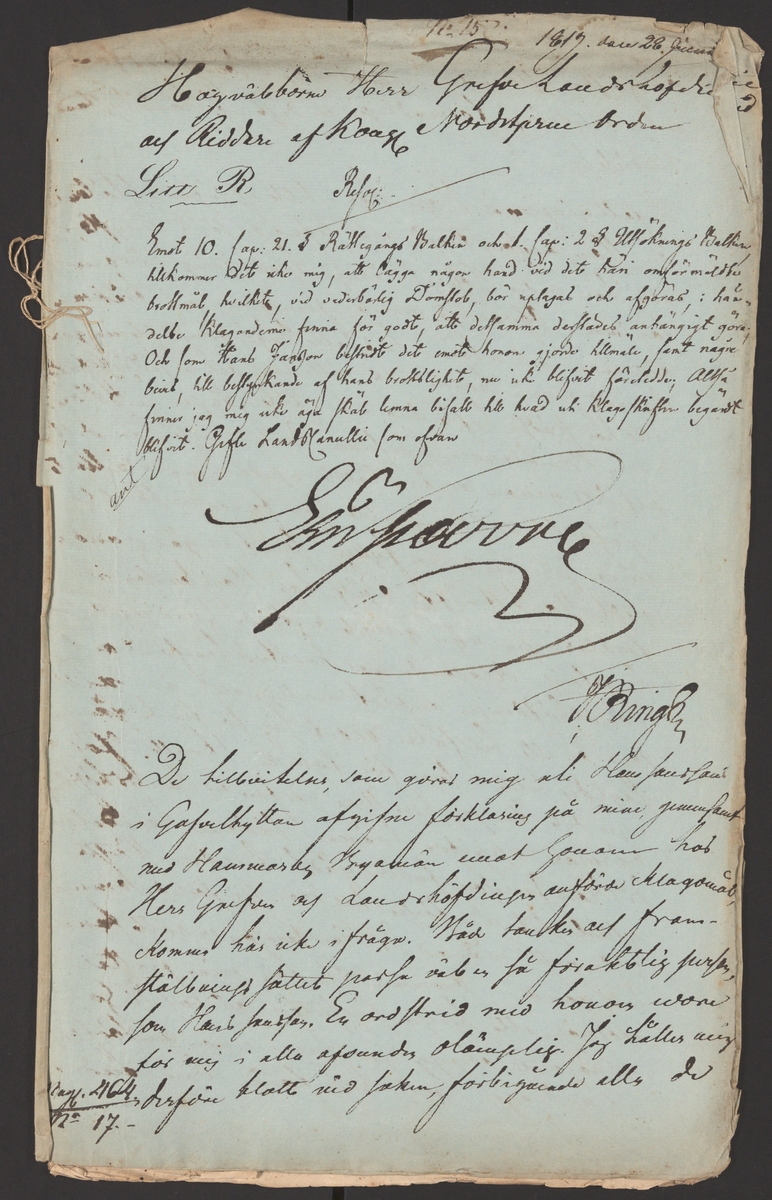 No 15.
1817. den 28. Junii
Högvälborne Herr Grefve Landshöfdinge
och Riddare af Kongl Nordstjerne Orden
Litt R Resol:
Emot 10. Cap: 21. § Rättegångs Balken och 1. Cap: 2 § Utsöknings Balken,
tillkommer det icke mig, att lägga någon hand vid det häri omförmäldte
brottmål, hvilket, vid vederbörlig Domstol, bör uptagas och afgöras, i hän-
delse Klaganderne finna för godt, att detsamma derstädes anhängigt göra;
Och som Hans Jansson bestridt det emot honom gjorde tillmäle, samt några
bevis, till bestyrkande af hans brottslighet, nu icke blifvit företedde; Altså
finner jag mig icke äga skäl lemna bifall till hvad uti Klagoskriften begärdt
blifvit. Gefle LandsCancellie som ofvan
E Sparre
Ring
De tillvitelser, som göras mig uti Hans Janssons
i Gafvelhyttan afgifne förklaring på mine, gemensamt
med Hammarby Byamän emot honom hos
Herr Grefven och Landshöfdingen anförde klagomål,
komma här icke i fråga. Både tankar och fram-
ställnings sättet passa väl en så föraktlig person,
som Hans Jansson. En ordstrid med honom wore
för mig i alla afseenden olämplig. Jag håller mig
derföre blott vid saken, förbigående alla de
pag. 464
No 17.-